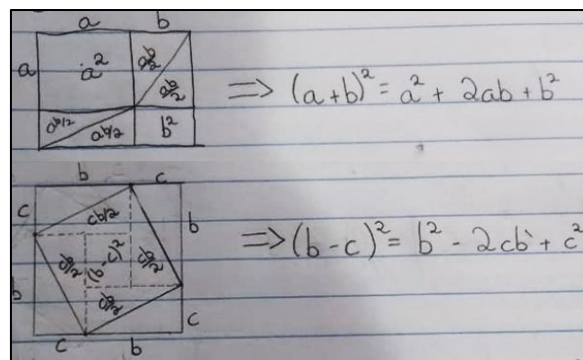 a b
a a² ab/2
ab/2 ⟹ (a+b)² = a² + 2ab + b²
ab/2 ab/2 b²
b c
c cb/2 b
cb/2 (b-c)² cb/2 ⟹ (b-c)² = b² - 2cb + c²
b cb/2 c
c b